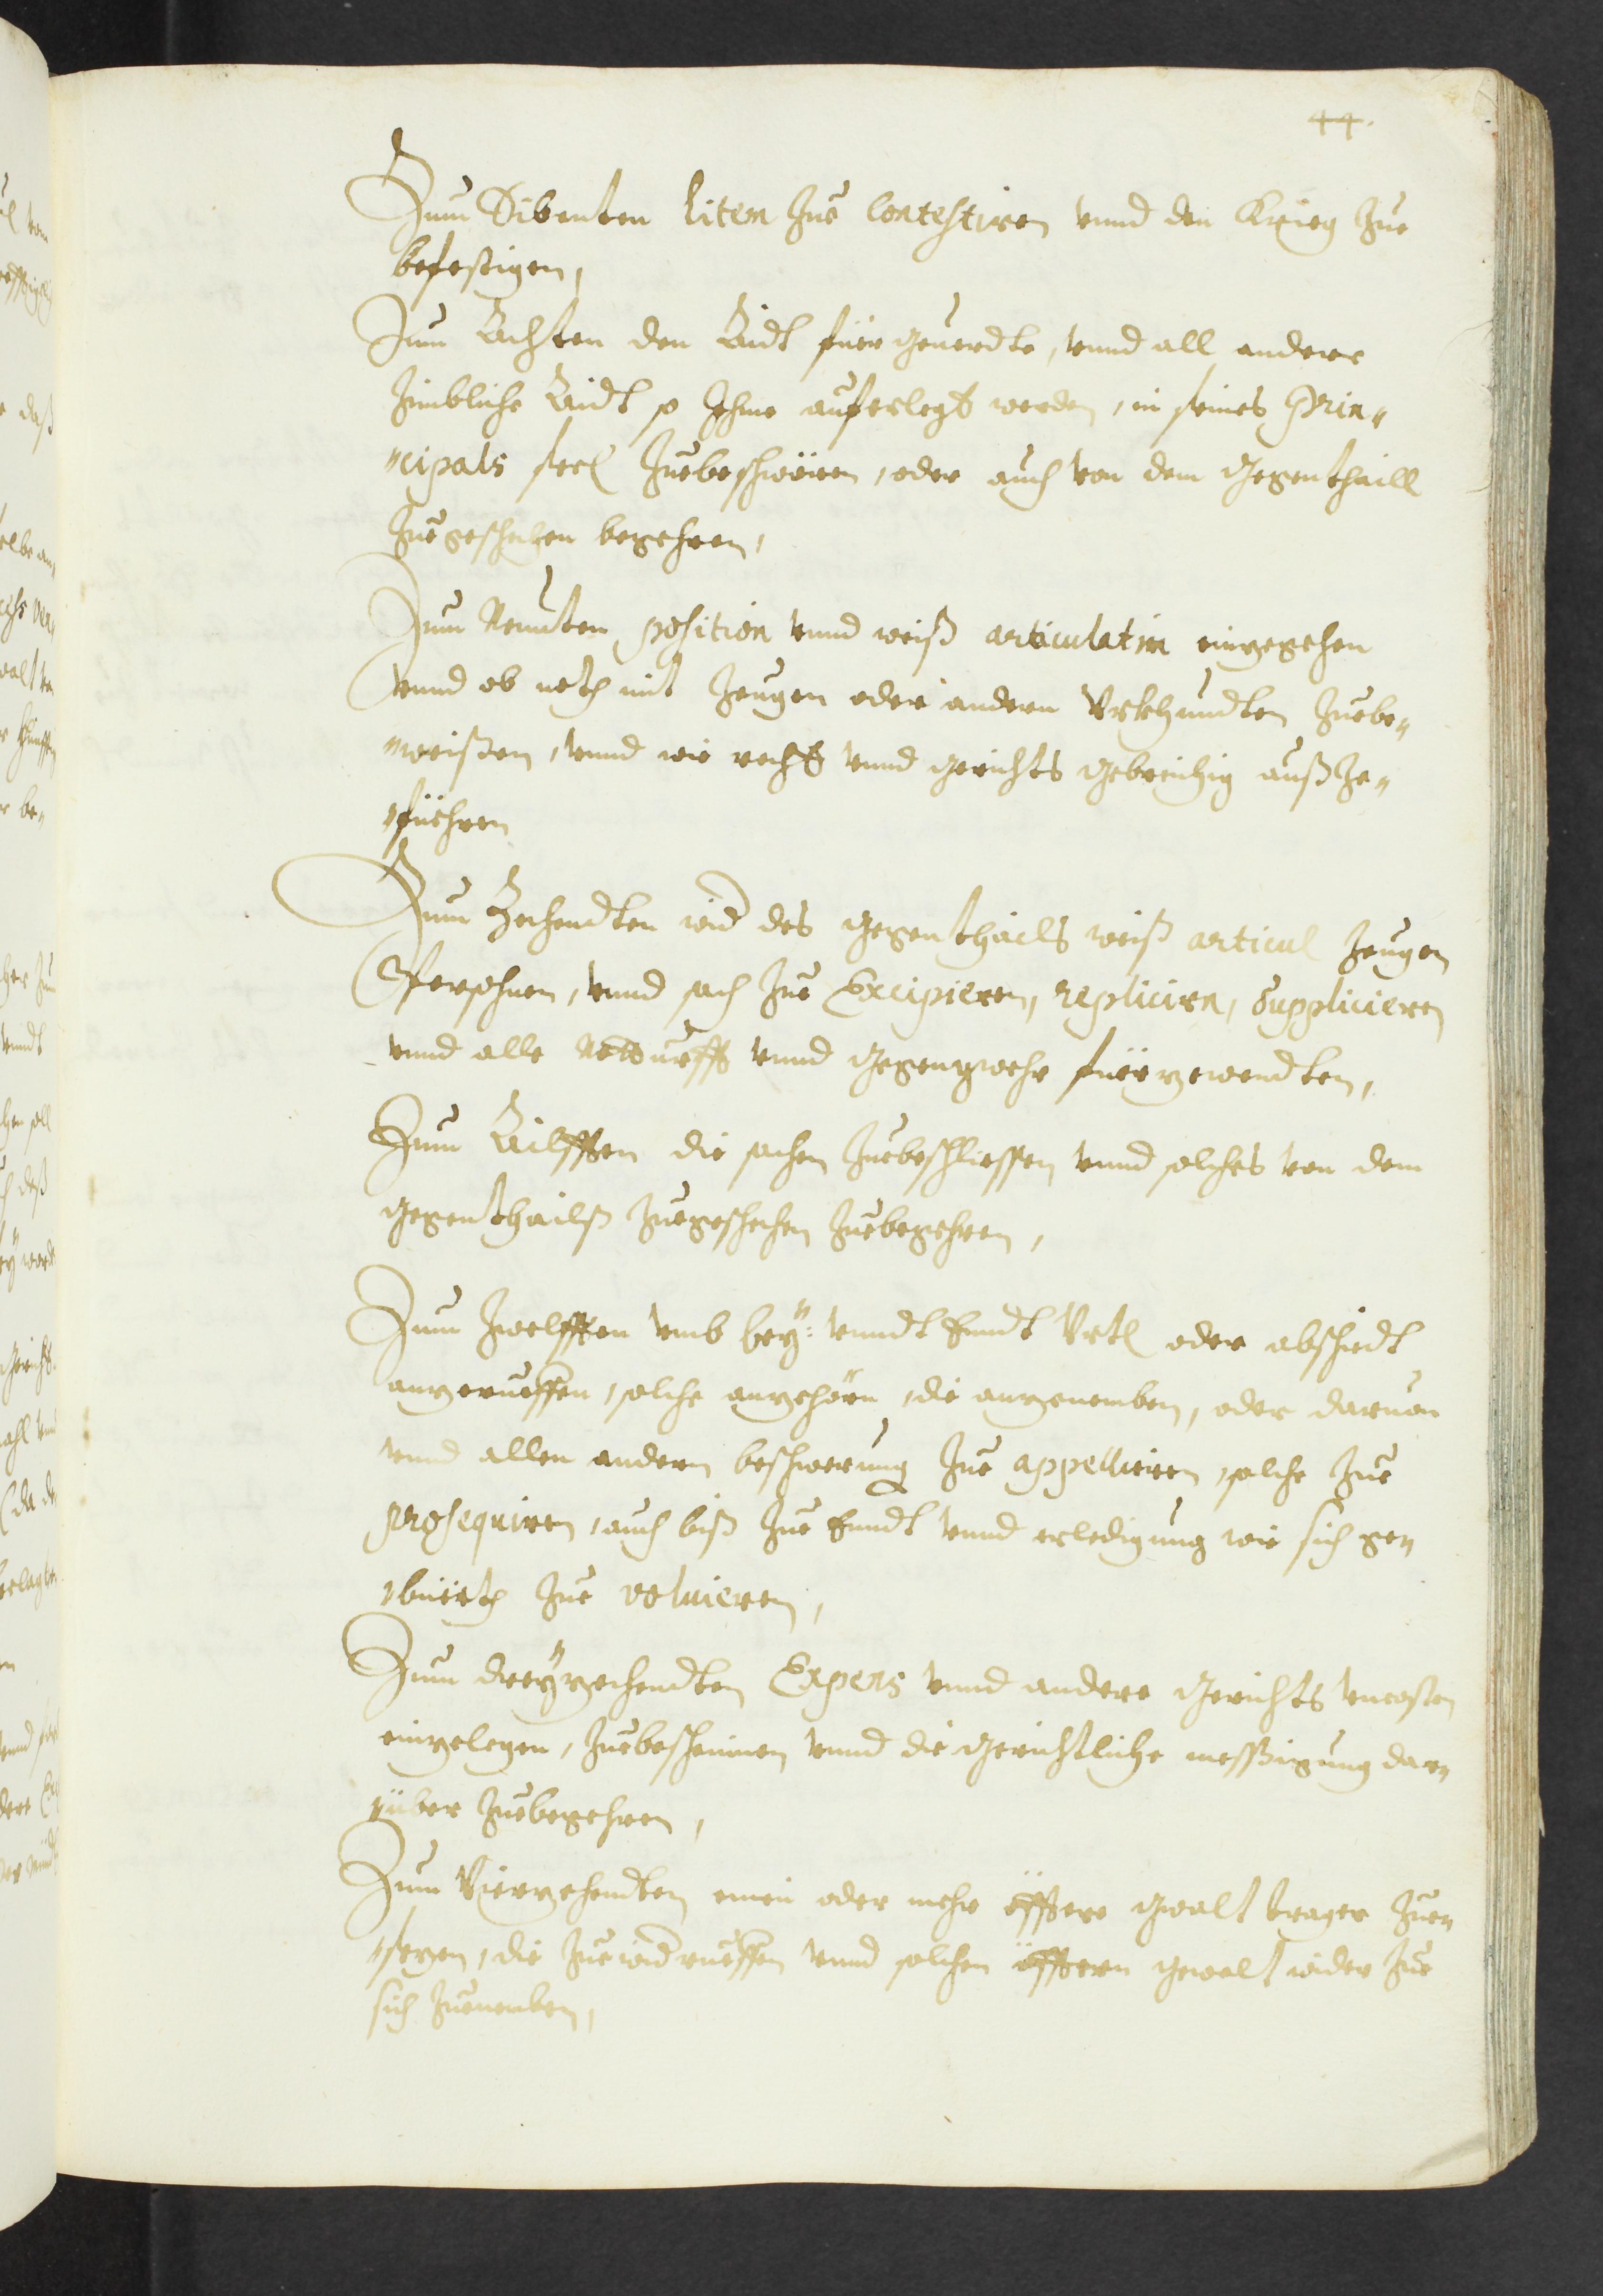 44.
Zum Sibenten litem zue contestiren vnnd den Krieg zue
befestigen,
Zum Achten den Aidt für geuerdte, vnnd all andere
zimbliche Aidt so Ihme auferlegt werden, in seines Prin„
„cipals seel zuebeschwören, oder auch von dem gegenthaill
zuegeschehen begehren,
Zum Neunten position vnnd weiß articulatim einzegehen
vnnd ob noth mit zeugen oder andern Vrkhundten zuebe„
„weißen, vnnd wie rechts vnnd gerichts gebreichig außze„
„füehren
Zum Zechendten wid des gegenthails weiß articul zeugen
Persohnen, vnnd sach zue Excipieren, replicirn, Supplicieren
vnnd alle Notturfft vnnd gegenwehr füerzewendten,
Zum Ailfften die sachen zuebeschliessen vnnd solches von dem
gegenthailß zuegeschehen zuebegehren,
Zum Zwelfften vmb bey: vnndt Enndt Vrtl oder abschidt
anzerueffen, solche anzehörn, die anzenemben, oder daruon
vnnd allen andern beschwerung zue appellieren, solche zue
prosequiren, auch biß zue Enndt vnnd erledigung wie sich ge„
„büerth zue voluieren,
Zum dreyzechendten Expens vnnd andere gerichts vncosten
einzelegen, zuebescheinen vnnd die gerichtliche messigung dar„
„über zuebegehren,
Zum Vierzehendten einen oder mehr äffter gwalt trager zue„
„sezen, die zuewidrueffen vnnd solchen äfftern gewalt wider zue
sich zuenemben,